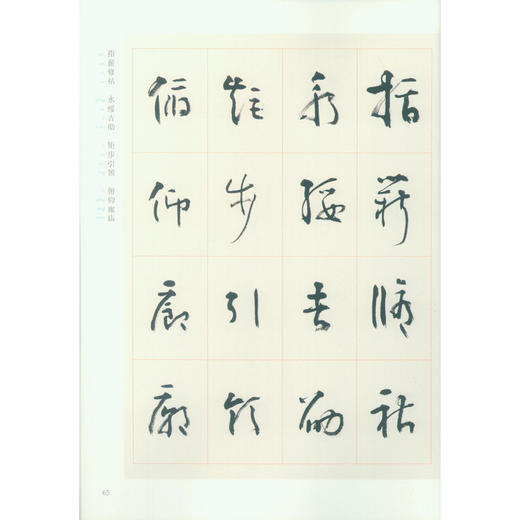 指薪脩祜
永綏吉劭
矩步引領
俯仰廊廟
指薪修祜 永绥吉劭 矩步引领 俯仰廊庙
65